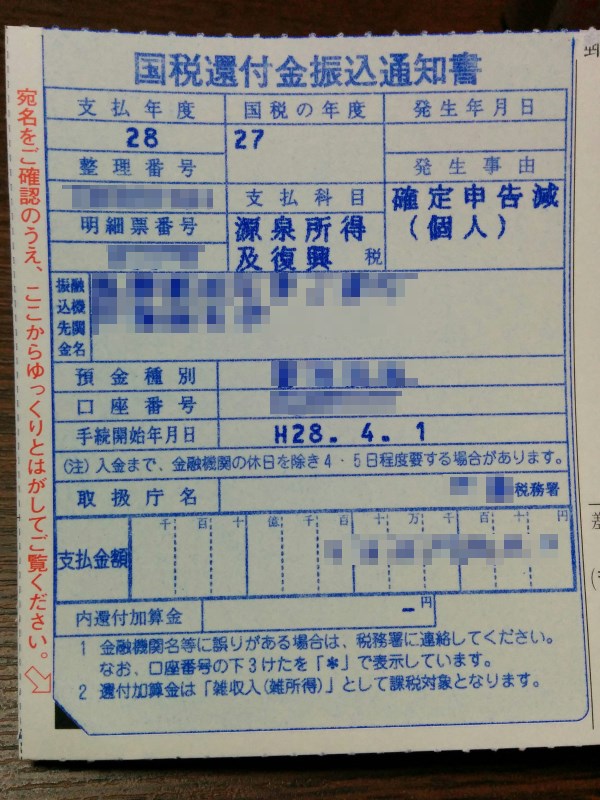 国税還付金振込通知書
支払年度
国税の年度
発生年月日
28
27
整理番号
発生事由
支払科目
確定申告減
(個人)
明細票番号
源泉所得
及復興 税
振込先金融機関名
預金種別
口座番号
手続開始年月日
H28. 4. 1
(注)入金まで、金融機関の休日を除き4・5日程度要する場合があります。
取扱庁名
税務署
千 百 十 億 千 百 十 万 千 百 十 円
支払金額
内還付加算金
- 円
1 金融機関名等に誤りがある場合は、税務署に連絡してください。
なお、口座番号の下3けたを「*」で表示しています。
2 還付加算金は「雑収入(雑所得)」として課税対象となります。
宛名をご確認のうえ、ここからゆっくりとはがしてご覧ください。